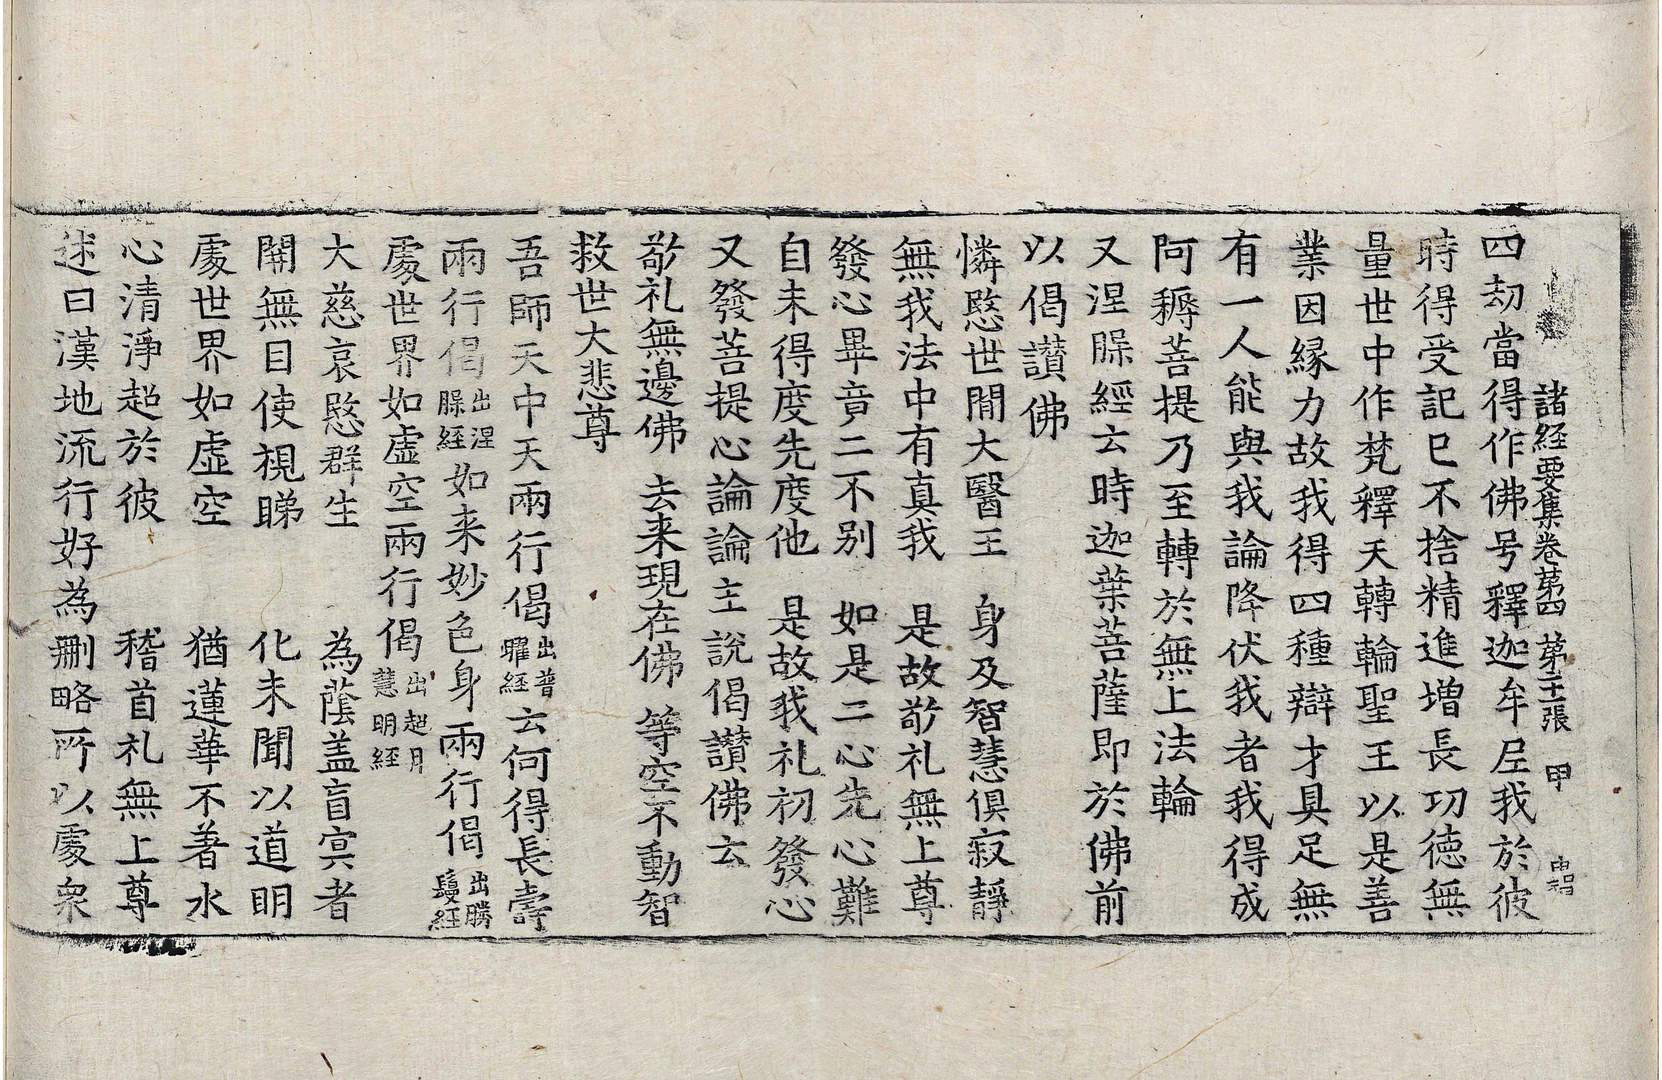 諸経要集卷苐四 苐二十張 甲
四劫當得作佛号釋迦牟尼我於彼
時得受記已不捨精進増長功徳無
量世中作梵釋天轉輪聖王以是善
業因縁力故我得四種辯才具足無
有一人能與我論降伏我者我得成
阿耨菩提乃至轉於無上法輪
又涅槃經云時迦葉菩薩即於佛前
以偈讃佛
憐愍世間大醫王 身及智慧俱寂靜
無我法中有真我 是故敬礼無上尊
發心畢竟二不别 如是二心先心難
自未得度先度他 是故我礼初發心
又發菩提心論論主說偈讃佛云
敬礼無邊佛 去来現在佛 等空不動智
救世大悲尊
吾師天中天兩行偈出普曜経云何得長壽
兩行偈出涅槃経如来妙色身兩行偈出勝鬘経
處世界如虚空兩行偈出超月慧明経
大慈哀愍群生 為蔭盖盲冥者
開無目使視睇 化未聞以道明
處世界如虚空 猶蓮華不著水
心清淨超於彼 稽首礼無上尊
述曰漢地流行好為刪略所以處衆